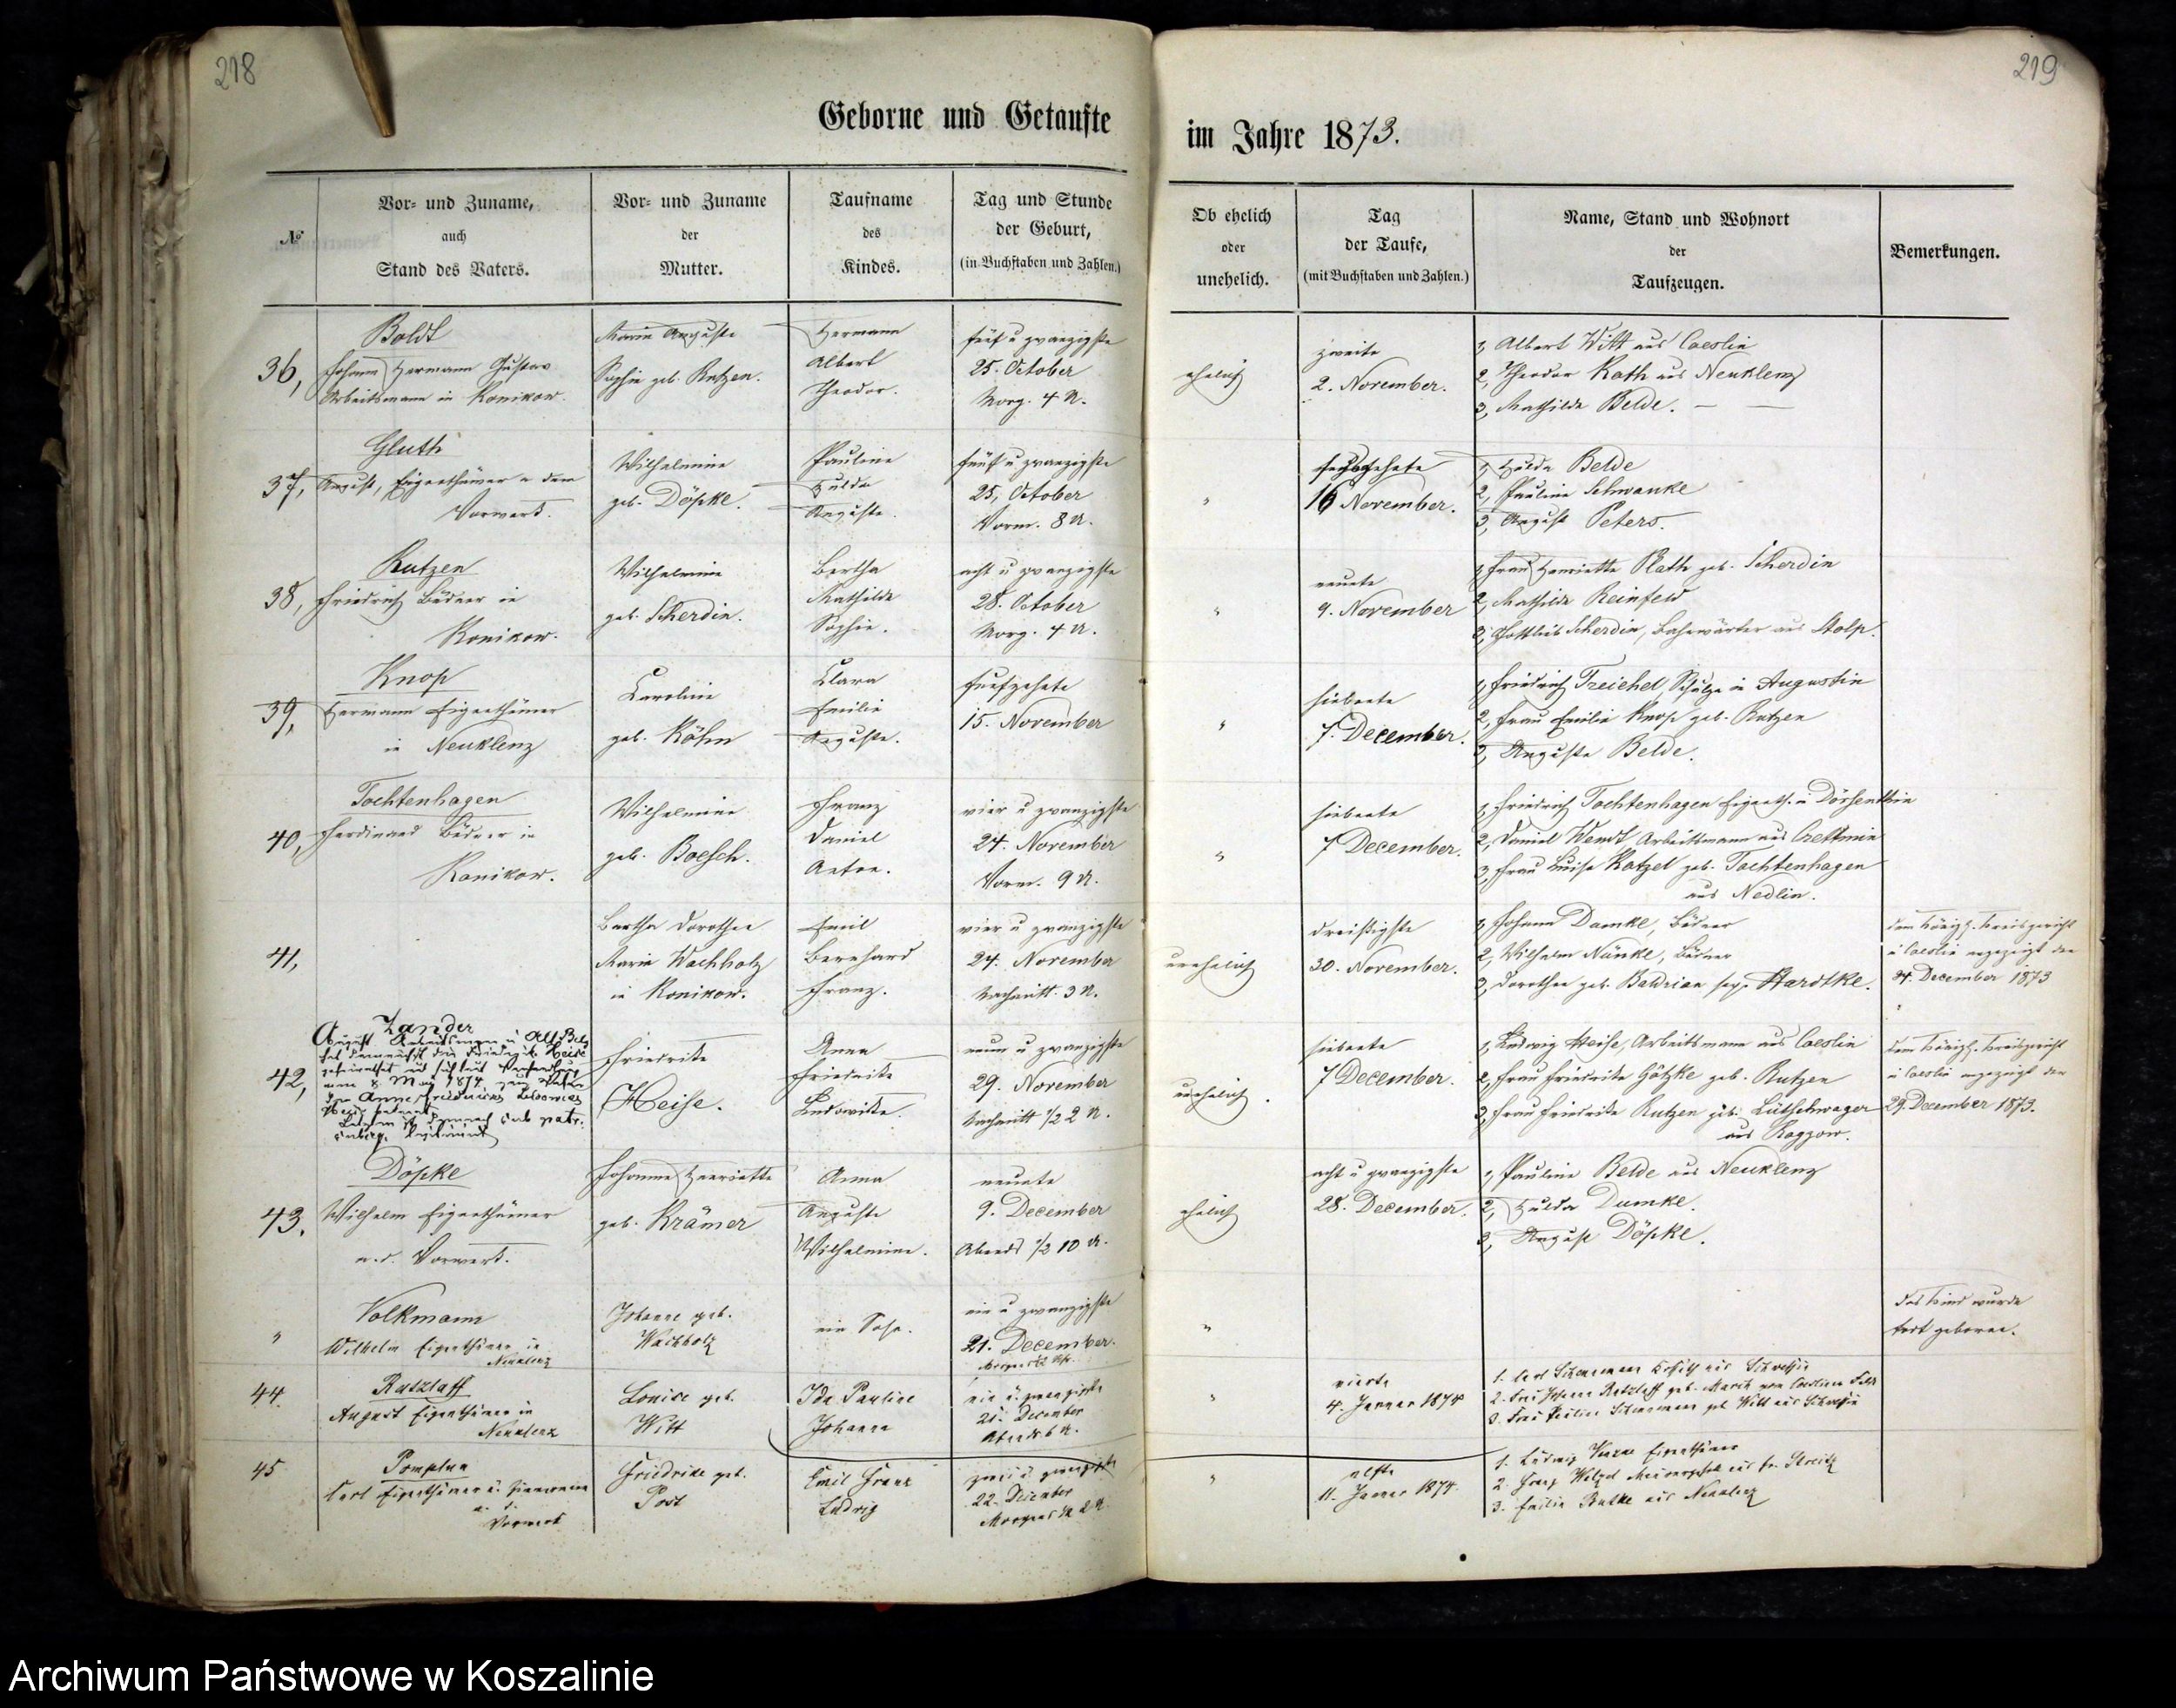 218
Geborne und Getaufte
№
Vor- und Zuname,
auch
Stand des Vaters.
Vor- und Zuname
der
Mutter.
Taufname
des
Kindes.
Tag und Stunde
der Geburt,
(in Buchstaben und Zahlen.)
36,
Boldt
Johann Hermann Gustav
Arbeitsmann in Konikow.
Marie Auguste
Sophie geb. Rutzen.
Hermann
Albert
Theodor.
fünf u zwanzigste
25. October
Morg. 4 U.
37,
Gluth
August, Eigenthümer a dem
Vorwerk.
Wilhelmine
geb. Döpke.
Pauline
Hulda
Auguste.
fünf u zwanzigste
25, October
Vorm. 8 U.
38,
Rutzen
Friedrich Büdner in
Konikow.
Wilhelmine
geb. Scherdin.
Bertha
Mathilde
Sophie.
acht u zwanzigste
28. October
Morg. 4 U.
39,
Knop
Hermann Eigenthümer
in Neuklenz
Caroline
geb. Köhn
Clara
Emilie
Auguste.
fünfzehnte
15. November
40,
Tochtenhagen
Ferdinand Büdner in
Konikow.
Wilhelmine
geb. Boesch.
Franz
Daniel
Anton.
vier u zwanzigste
24. November
Vorm. 9 U.
41,
Bertha Dorothee
Marie Wachholz
in Konikow.
Emil
Bernhard
Franz.
vier u zwanzigste
24. November
Nachmitt. 3 U.
42,
Zander
August Arbeitsmann in Alt Belz
hat demnächst die Friederike Heise
geheirathet und sich laut Verhandlung
vom 8 May 1874 zum Vater
der Anna Friederike Ludowicka
Heise bekannt
Friedrike
Heise.
Anna
Friedrike
Ludowika.
neun u zwanzigste
29. November
Nachmitt ½ 2 U.
43.
Döpke
Wilhelm Eigenthümer
a. d. Vorwerk.
Johanne Henriette
geb. Krämer
Anna
Auguste
Wilhelmine.
neunte
9. December
Abends ½ 10 U.
"
Volkmann
Wilhelm Eigenthümer in
Neuklenz
Johanne geb.
Wachholz
ein Sohn.
ein u zwanzigste
21. December.
44.
Ratzlaff
August Eigenthümer in
Neuklenz
Louise geb.
Witt
Ida Pauline
Johanna
ein u zwanzigste
21. December
Abends 6 U.
45
Pomplun
Carl Eigenthümer u. Zimmermann
a. d.
Vorwerk
Friedrike geb.
Post
Emil Franz
Ludwig
zwei u. zwanzigste
22. December
Morgens ½ 2 U.
219
im Jahre 1873.
Ob ehelich
oder
unehelich.
Tag
der Taufe,
(mit Buchstaben und Zahlen.)
Name, Stand und Wohnort
der
Taufzeugen.
Bemerkungen.
ehelich
zweite
2. November.
1, Albert Witt aus Coeslin
2, Theodor Rath aus Neuklenz
3, Mathilde Belde. — —
"
sechszehnte
16 November.
1, Hulda Belde
2, Pauline Schwanke
3, August Peters.
"
neunte
9. November
1, Frau Henriette Plath geb. Scherdin
2, Mathilde Reinfeld
3, Gottlieb Scherdin, Bahnwärter aus Stolp.
"
siebente
7. December.
1, Friedrich Treichel, Schulze in Augustin
2, Frau Emilie Knop geb. Rutzen
3, Auguste Belde.
"
siebente
7 December.
1, Friedrich Tochtenhagen Eigenth. in Dörsenthin
2, Daniel Wendt, Arbeitsmann aus Crettmin
3, Frau Luise Katzel geb. Tochtenhagen
aus Nedlin.
unehelich
dreißigste
30. November.
1, Johann Damke, Büdner
2, Wilhelm Nünke, Büdner
3, Dorothee geb. Baldrian sep. Hardtke.
dem Königl. Kreisgericht
in Coeslin angezeigt den
24. December 1873
unehelich.
siebente
7 December.
1, Ludwig Heise, Arbeitsmann aus Coeslin
2, Frau Friedrike Götzke geb. Rutzen
3, Frau Friedrike Rutzen geb. Lütschwager
aus Roggow.
dem Königl. Kreisgericht
in Coeslin angezeigt den
29. December 1873.
ehelich
acht u zwanzigste
28. December.
1, Pauline Belde aus Neuklenz
2, Hulda Dumke.
3, August Döpke.
"
Das Kind wurde
todt geboren.
"
vierte
4. Januar 1874
"
elfte
11. Januar 1874.
Archiwum Państwowe w Koszalinie